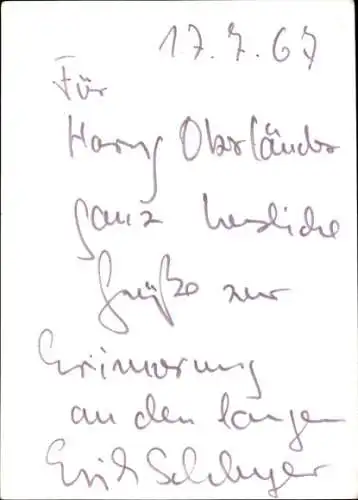 17.7.67
Für
Harry Oberländer
ganz herzliche
Grüße zur
Erinnerung
an den langen
Erik